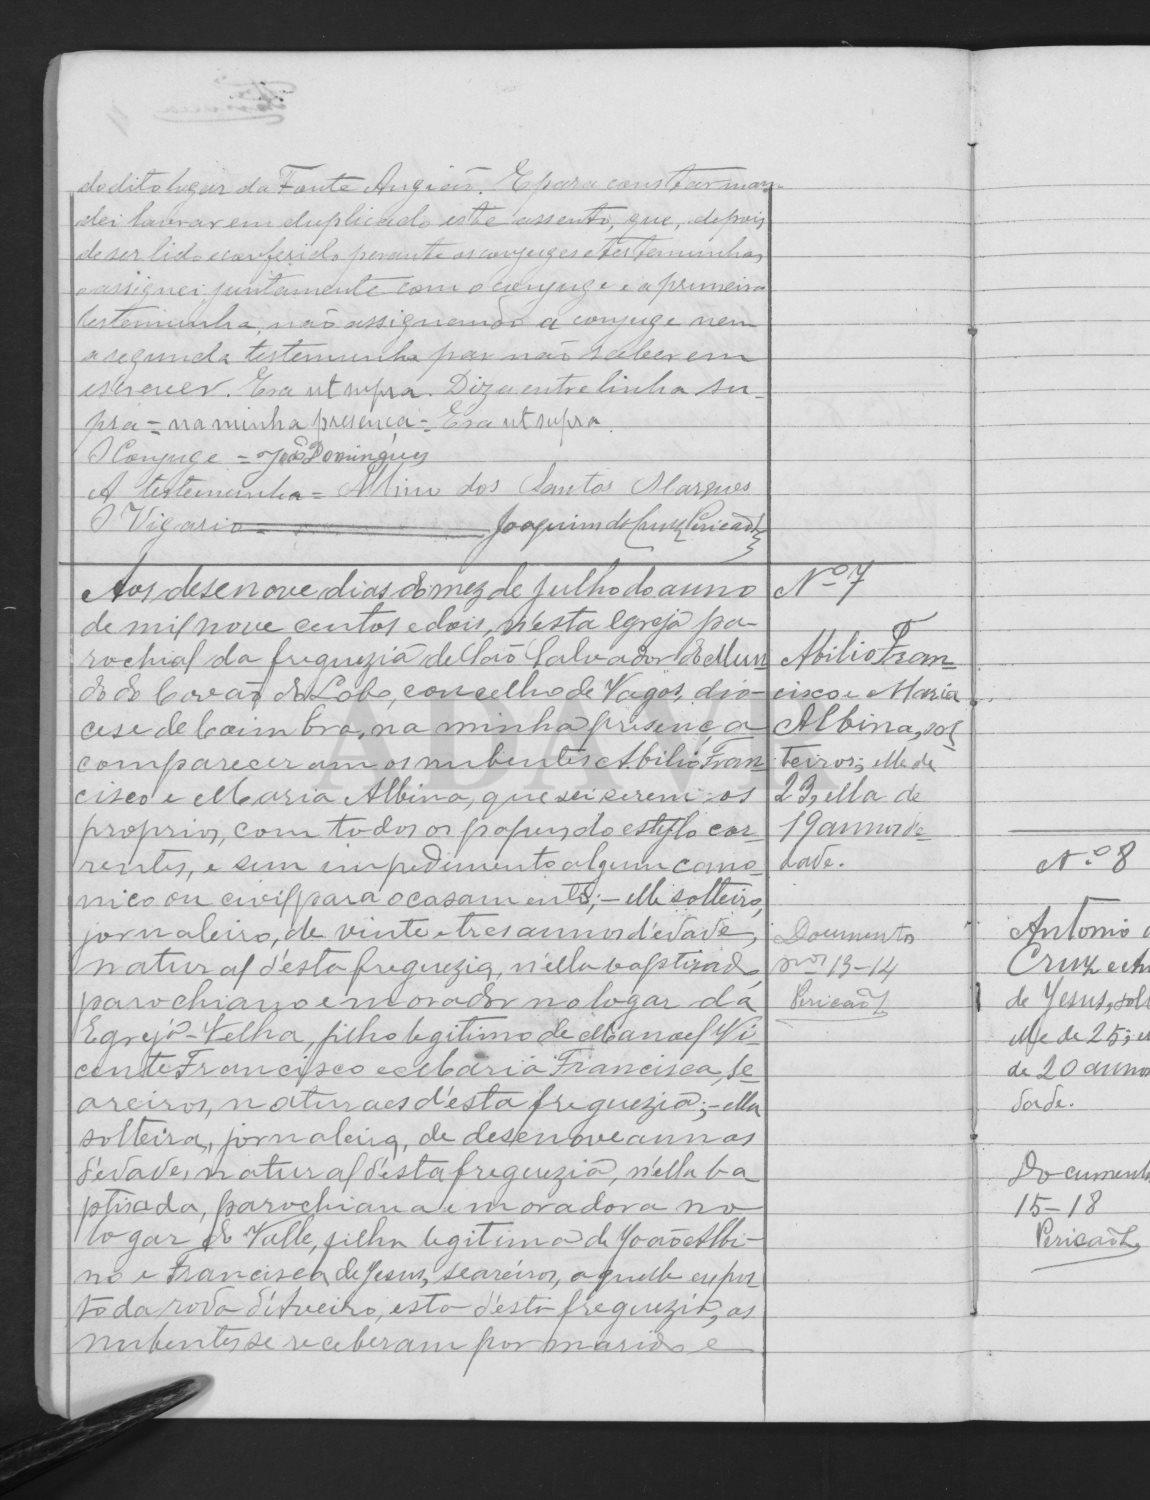 do dito logar da Fonte Angião. E para constar man-
dei lavrar em duplicado este assento, que, depois
de ser lido e conferido perante os conjuges e testemunhas,
assignei juntamente com o conjuge e a primeira
testemunha, não assignando a conjuge nem
a segunda testemunha por não saberem
escrever. Era ut supra. Diz a entrelinha su-
pra = na minha presença = Era ut supra.
O Conjuge = João Domingues
A testemunha = Albino dos Santos Marques
O Vigario = Joaquim da Cruz Pericão
Aos desenove dias do mez de julho do anno
de mil nove centos e dois, n'esta Egreja pa-
rochial da freguezia de São Salvador do Mun
do do Covão do Lobo, concelho de Vagos, dio-
cese de Coimbra, na minha presença
compareceram os nubentes Abilio Fran-
cisco e Maria Albina, que sei serem os
proprios, com todos os papeis do estylo cor-
rentes, e sem impedimento algum cano-
nico ou civil para o casamento; - elle solteiro,
jornaleiro, de vinte e tres annos d'edade,
natural d'esta freguezia, n'ella baptizado,
parochiano e morador no logar da
Egreja-Velha, filho legitimo de Manoel Vi-
cente Francisco e Maria Francisca, se-
areiros, naturaes d'esta freguezia; - ella
solteira, jornaleira, de desenove annos
d'edade, natural d'esta freguezia, n'ella ba
ptisada, parochiana e moradora no
logar do Valle, filha legitima de João Albi-
no e Francisca de Jesus, seareiros, aquelle expos
to da roda d'Aveiro, esta d'esta freguezia, os
nubentes se receberam por marido e
Nº 7
Abilio Fran-
cisco e Maria
Albina, sol
teiros; elle de
23, ella de
19 annos de
dade.
Documentos
nos 13-14
Pericão
N.º 8
Antonio
Cruz e
de Jesus, sol
elle de 25; e
de 20 annos
dade.
Documento
15-18
Pericão
ADAVR